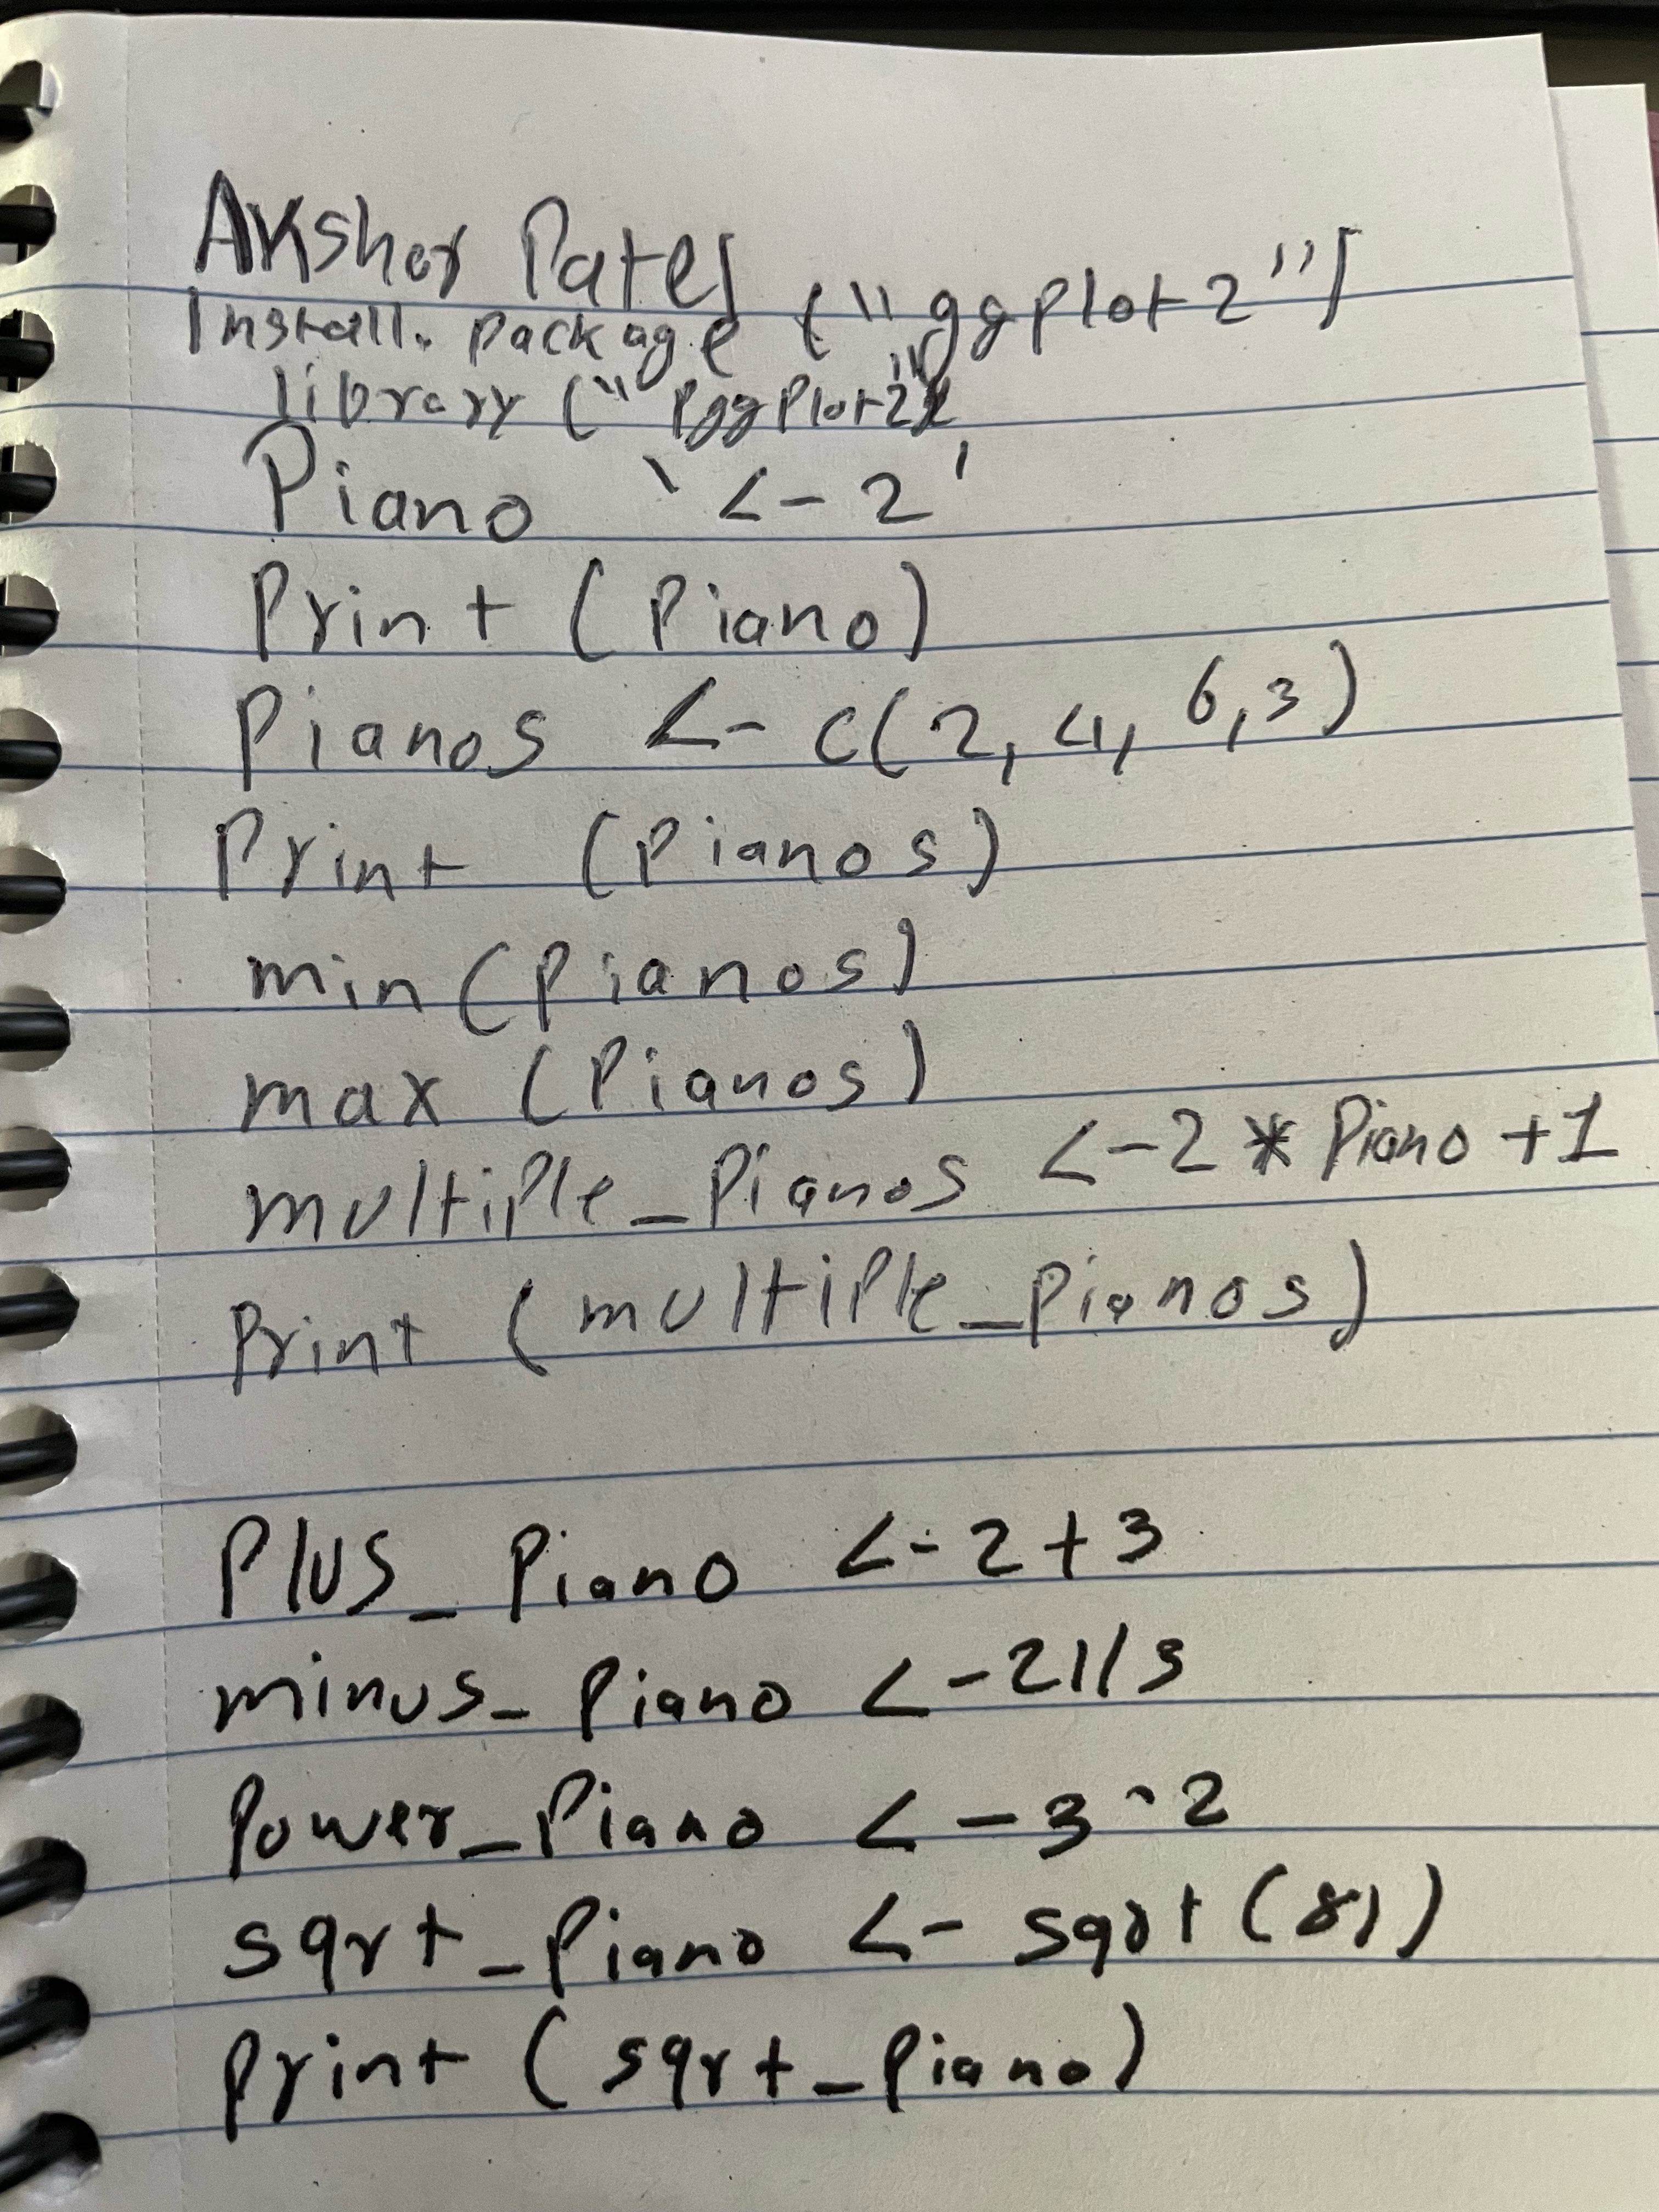 Akshar Patel
Install. package ("ggplot2")
library ("ggplot2")
Piano '<-2'
Print (Piano)
Pianos <- c(2, 4, 6, 3)
Print (Pianos)
min (Pianos)
max (Pianos)
multiple_Pianos <-2 * Piano +1
Print (multiple_Pianos)
Plus_Piano <-2+3
minus_Piano <-21/3
Power_Piano <-3^2
sqrt_Piano <- sqrt (81)
print (sqrt_Piano)